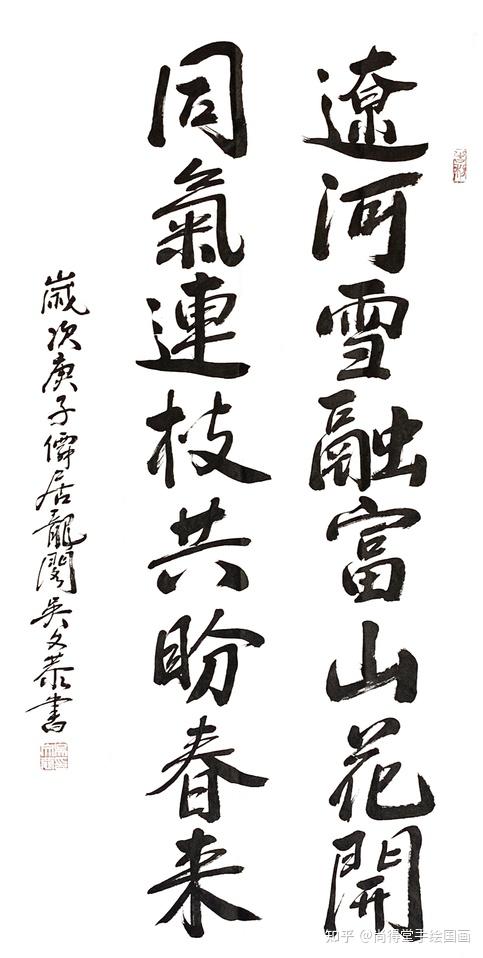 遼河雪融富山花開
同氣連枝共盼春来
歲次庚子僑居龍閣吳文恭書
知乎 @尚得堂手绘国画